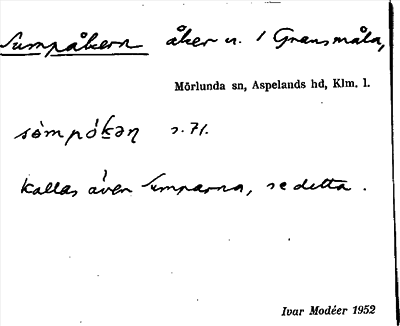 Sumpåkern åker n. 1 Gransmåla,
Mörlunda sn, Aspelands hd, Klm. l.
sòmpókən s. 71.
kallas även Sumparna, se detta.
Ivar Modéer 1952